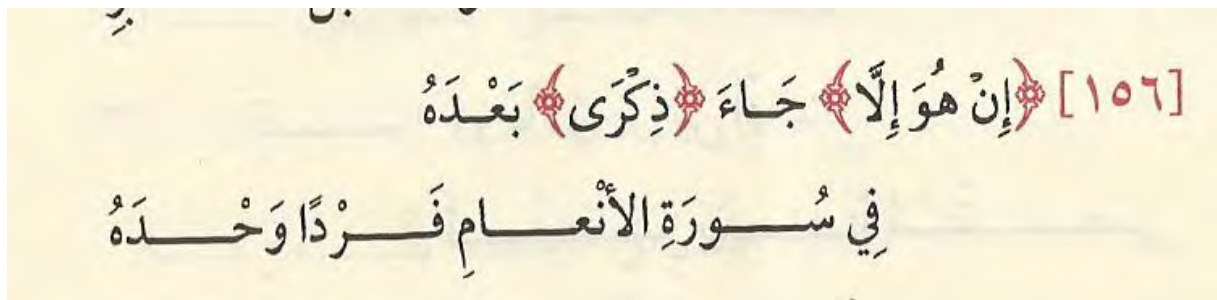 [١٥٦] ﴿إِنْ هُوَ إِلَّا﴾ جَاءَ ﴿ذِكْرَى﴾ بَعْدَهُ
فِي سُورَةِ الأَنْعَامِ فَرْدًا وَحْدَهُ